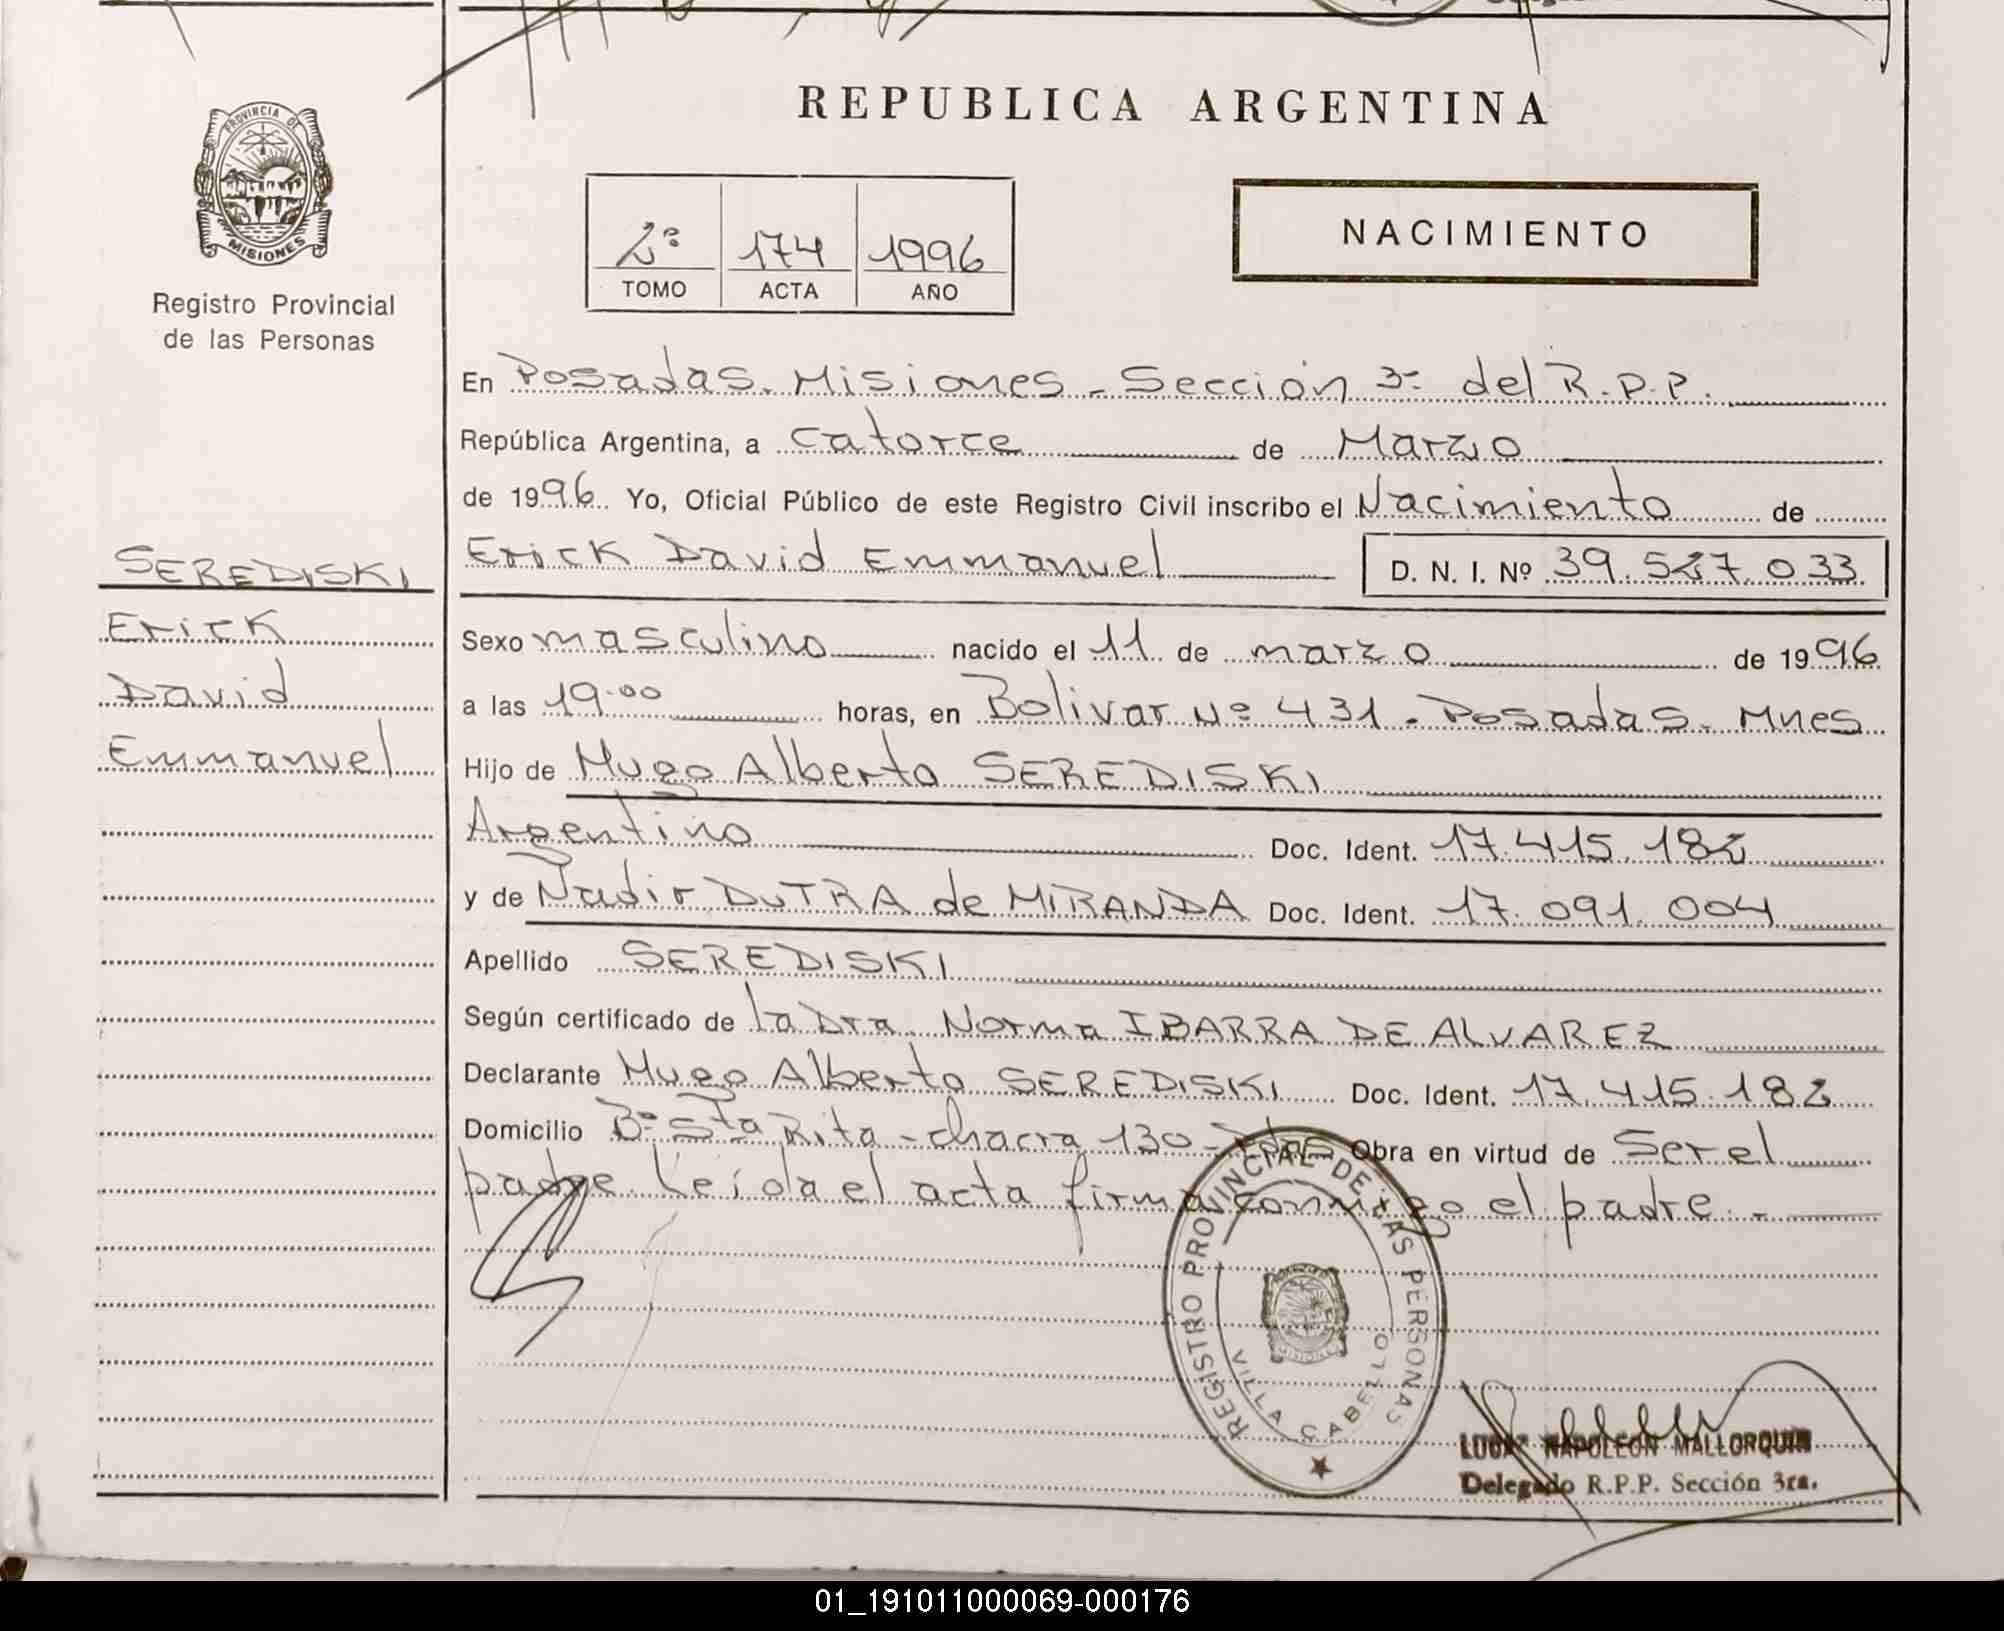 REPUBLICA ARGENTINA
PROVINCIA DE
MISIONES
Registro Provincial
de las Personas
2º 174 1996
TOMO ACTA AÑO
NACIMIENTO
En Posadas. Misiones - Sección 3º del R.P.P.
República Argentina, a catorce de Marzo
de 1996 Yo, Oficial Público de este Registro Civil inscribo el Nacimiento de
Erick David Emmanuel D. N. I. Nº 39.527.033
SEREDISKI
Erick
David
Emmanuel
Sexo masculino nacido el 11 de marzo de 1996
a las 19.00 horas, en Bolivar Nº 431. Posadas. Mnes
Hijo de Hugo Alberto SEREDISKI
Argentino Doc. Ident. 17.415.182
y de Nadir DUTRA de MIRANDA Doc. Ident. 17.091.004
Apellido SEREDISKI
Según certificado de la Dra. Norma IBARRA DE ALVAREZ
Declarante Hugo Alberto SEREDISKI Doc. Ident. 17.415.182
Domicilio Bº Sta Rita - chacra 130 - Pdas Obra en virtud de Ser el
padre. Leída el acta firma conmigo el padre. -
REGISTRO PROVINCIAL DE LAS PERSONAS
VILLA CABELLO
MISIONES
NAPOLEON MALLORQUIN
Delegado R.P.P. Sección 3ra.
01_191011000069-000176